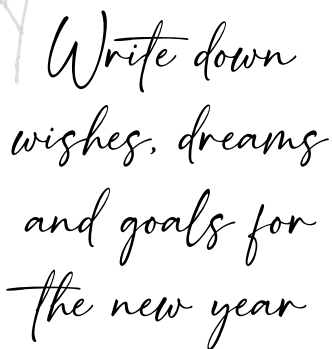 Write down
wishes, dreams
and goals for
the new year